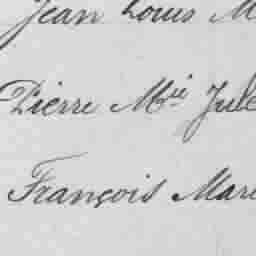 Jean Louis M
Pierre Mie Jule
François Mari